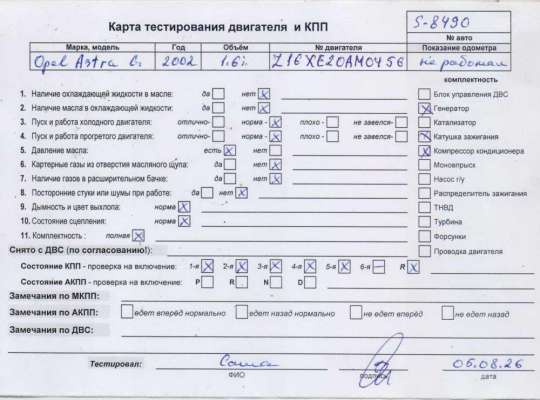 Карта тестирования двигателя и КПП
S-8490
№ авто
Марка, модель Год Объём № двигателя Показание одометра
Opel Astra G 2002 1.6i Z16XE20AM0456 не работал
комплектность
1. Наличие охлаждающей жидкости в масле: да нет X
Блок управления ДВС
2. Наличие масла в охлаждающей жидкости: да нет X
X Генератор
3. Пуск и работа холодного двигателя: отлично- норма - X плохо - не завелся-
Катализатор
4. Пуск и работа прогретого двигателя: отлично- норма - X плохо - не завелся-
X Катушка зажигания
5. Давление масла: есть X нет
X Компрессор кондиционера
6. Картерные газы из отверствия масляного щупа: да нет X
Моновпрыск
7. Наличие газов в расширительном бачке: да нет X
Насос г/у
8. Посторонние стуки или шумы при работе: да нет X
Распределитель зажигания
9. Дымность и цвет выхлопа: норма X
ТНВД
10. Состояние сцепления: норма X
Турбина
11. Комплектность : полная X
Форсунки
Снято с ДВС (по согласованию!):
Проводка двигателя
Состояние КПП - проверка на включение: 1-я X 2-я X 3-я X 4-я X 5-я X 6-я — R X
Состояние АКПП - проверка на включение: P R N D
Замечания по МКПП:
Замечания по АКПП: едет вперёд нормально едет назад нормально не едет вперёд не едет назад
Замечания по ДВС:
Тестировал: 05.08.26
ФИО подпись дата